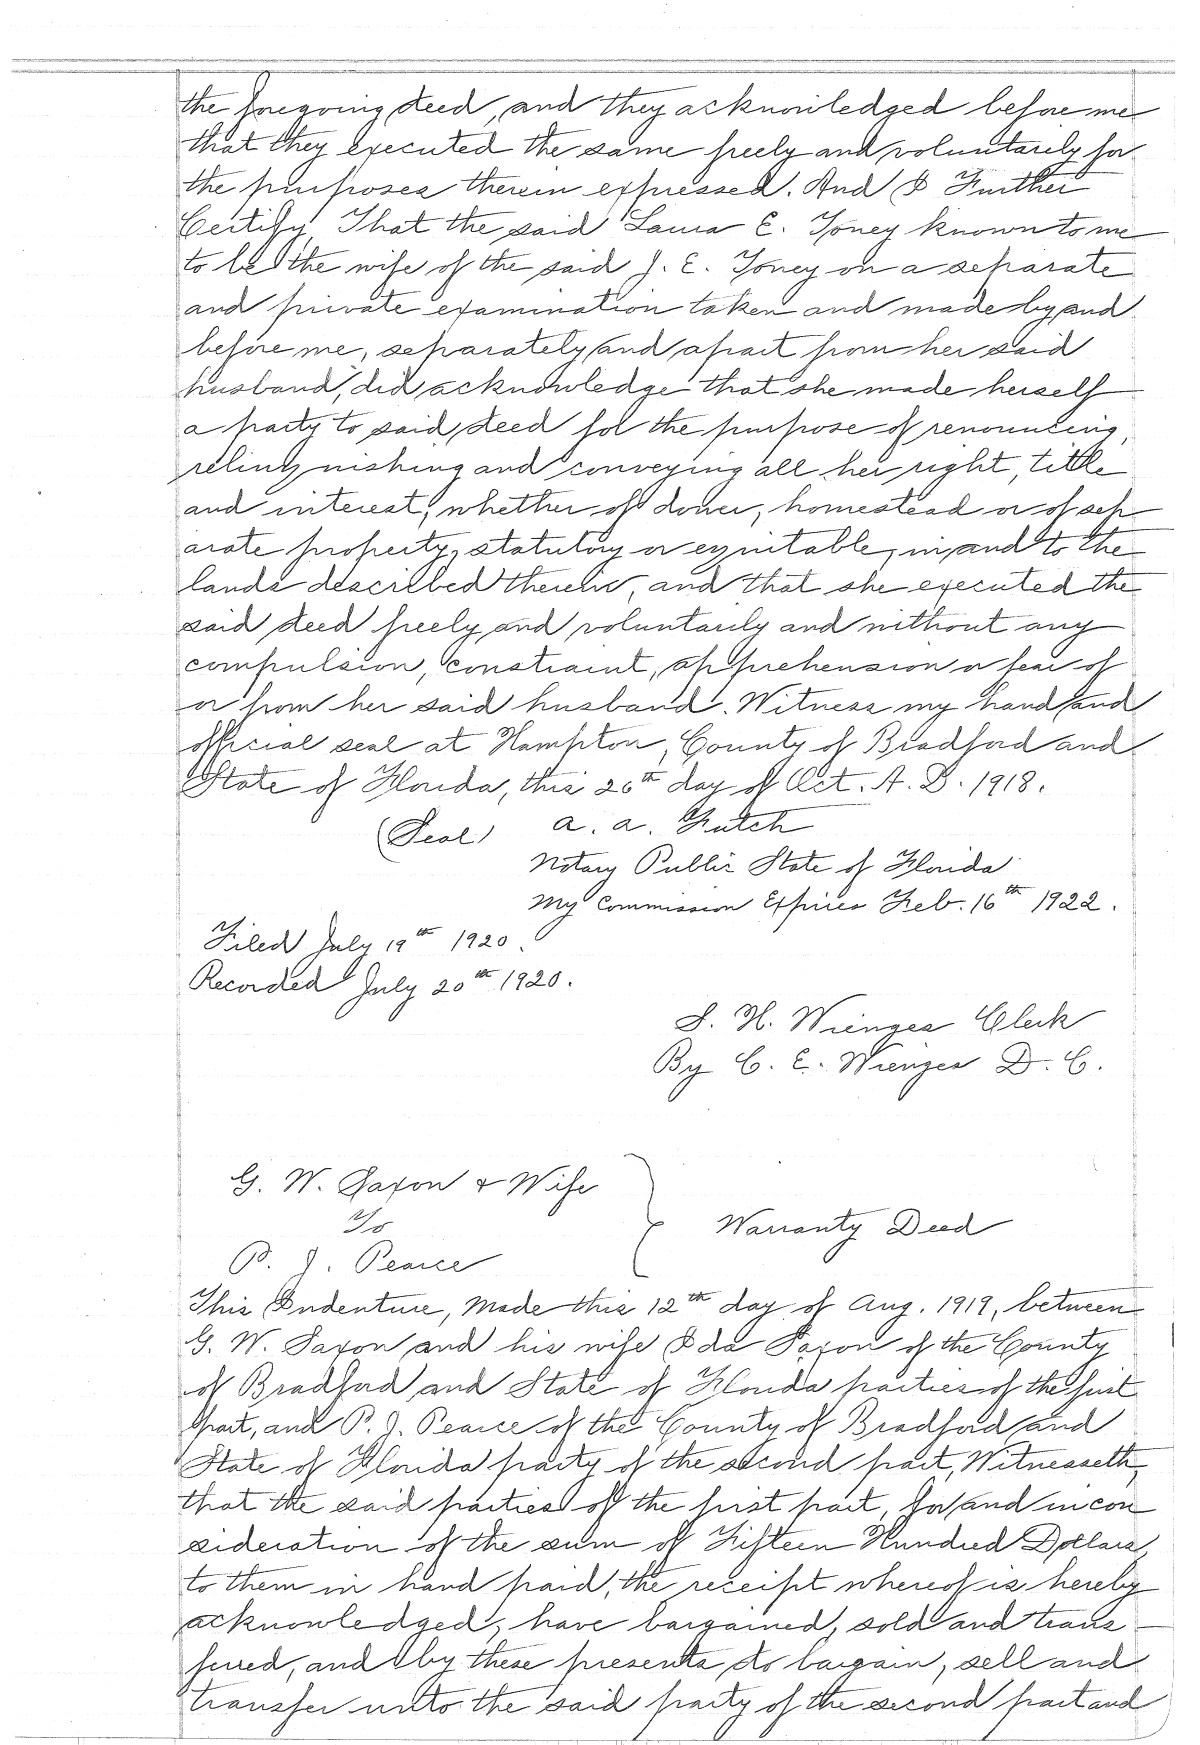 the foregoing deed, and they acknowledged before me
that they executed the same freely and voluntarily for
the purposes therein expressed. And I Further
Certify, That the said Laura E. Toney known to me
to be the wife of the said J. E. Toney on a separate
and private examination taken and made by and
before me, separately and apart from her said
husband, did acknowledge that she made herself
a party to said deed for the purpose of renouncing,
relinquishing and conveying all her right, title
and interest, whether of dower, homestead or of sep
arate property, statutory or equitable, in and to the
lands described therein, and that she executed the
said deed freely and voluntarily and without any
compulsion, constraint, apprehension or fear of
or from her said husband. Witness my hand and
official seal at Hampton, County of Bradford and
State of Florida, this 26th day of Oct. A. D. 1918.
(Seal) A. A. Futch
Notary Public State of Florida
My Commission Expires Feb. 16th 1922.
Filed July 19th 1920.
Recorded July 20th 1920.
S. H. Wienges Clerk
By C. E. Wienges D. C.
G. W. Saxon & Wife
To
Warranty Deed
P. J. Pearce
This Indenture, Made this 12th day of Aug. 1919, between
G. W. Saxon and his wife Ida Saxon of the County
of Bradford and State of Florida parties of the first
part, and P. J. Pearce of the County of Bradford and
State of Florida party of the second part, Witnesseth,
that the said parties of the first part, for and in con
sideration of the sum of Fifteen Hundred Dollars,
to them in hand paid, the receipt whereof is hereby
acknowledged, have bargained, sold and trans
ferred, and by these presents do bargain, sell and
transfer unto the said party of the second part and